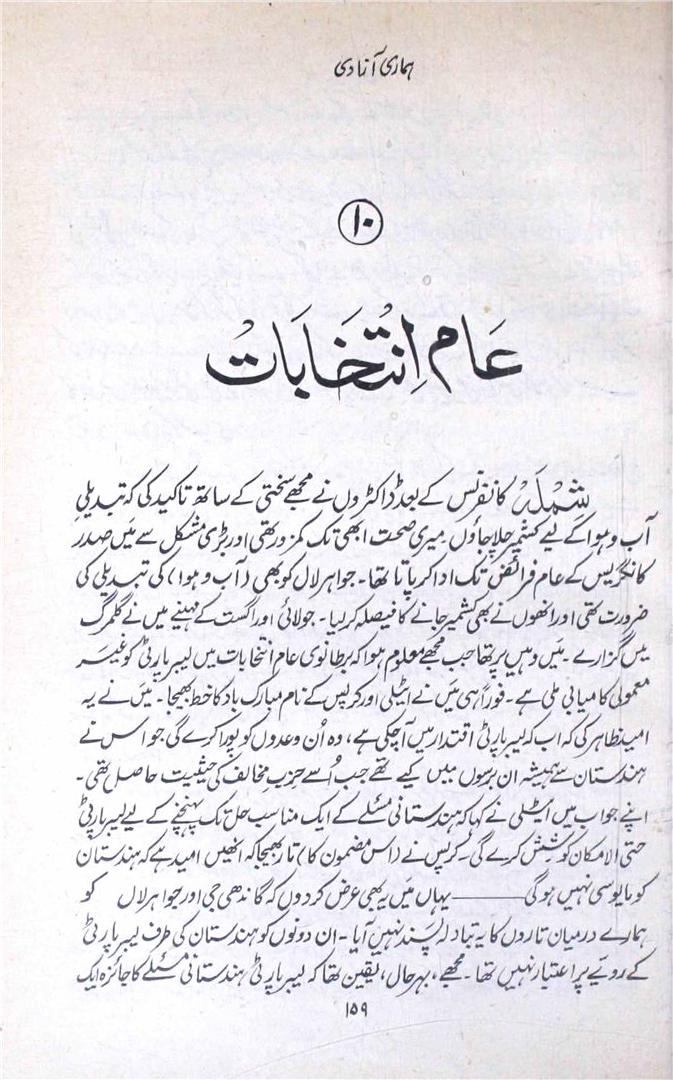 ہماری آزادی
۱۰
عام اِنتخابات
شِملہ کانفرنس کے بعد ڈاکٹروں نے مجھے سختی کے ساتھ تاکید کی کہ تبدیلیِ
آب و ہوا کے لیے کشمیر چلا جاؤں۔ میری صحت ابھی تک کمزور تھی اور بڑی مشکل سے میں صدر
کانگریس کے عام فرائض تک ادا کر پاتا تھا۔ جواہر لال کو بھی (آب و ہوا) کی تبدیلی کی
ضرورت تھی اور انھوں نے بھی کشمیر جانے کا فیصلہ کر لیا۔ جولائی اور اگست کے مہینے میں نے گلمرگ
میں گزارے۔ میں وہیں پر تھا جب مجھے معلوم ہوا کہ برطانوی عام انتخابات میں لیبر پارٹی کو غیر
معمولی کامیابی ملی ہے۔ فوراً ہی میں نے ایٹلی اور کرپس کے نام مبارک باد کا خط بھیجا۔ میں نے یہ
امید ظاہر کی کہ اب کہ لیبر پارٹی اقتدار میں آچکی ہے، وہ اُن وعدوں کو پورا کرے گی جو اس نے
ہندستان سے ہمیشہ ان برسوں میں کیے تھے جب اُسے حزبِ مخالف کی حیثیت حاصل تھی۔
اپنے جواب میں ایٹلی نے کہا کہ ہندستانی مسئلے کے ایک مناسب حل تک پہنچنے کے لیے لیبر پارٹی
حتی الامکان کوشش کرے گی۔ کرپس نے (اس مضمون کا) تار بھیجا کہ انھیں امید ہے کہ ہندستان
کو مایوسی نہیں ہوگی ——— یہاں میں یہ بھی عرض کردوں کہ گاندھی جی اور جواہر لال کو
ہمارے درمیان تاروں کا یہ تبادلہ پسند نہیں آیا۔ ان دونوں کو ہندستان کی طرف لیبر پارٹی
کے رویے پر اعتبار نہیں تھا۔ مجھے، بہرحال، یقین تھا کہ لیبر پارٹی ہندستانی مسئلے کا جائزہ ایک
۱۵۹